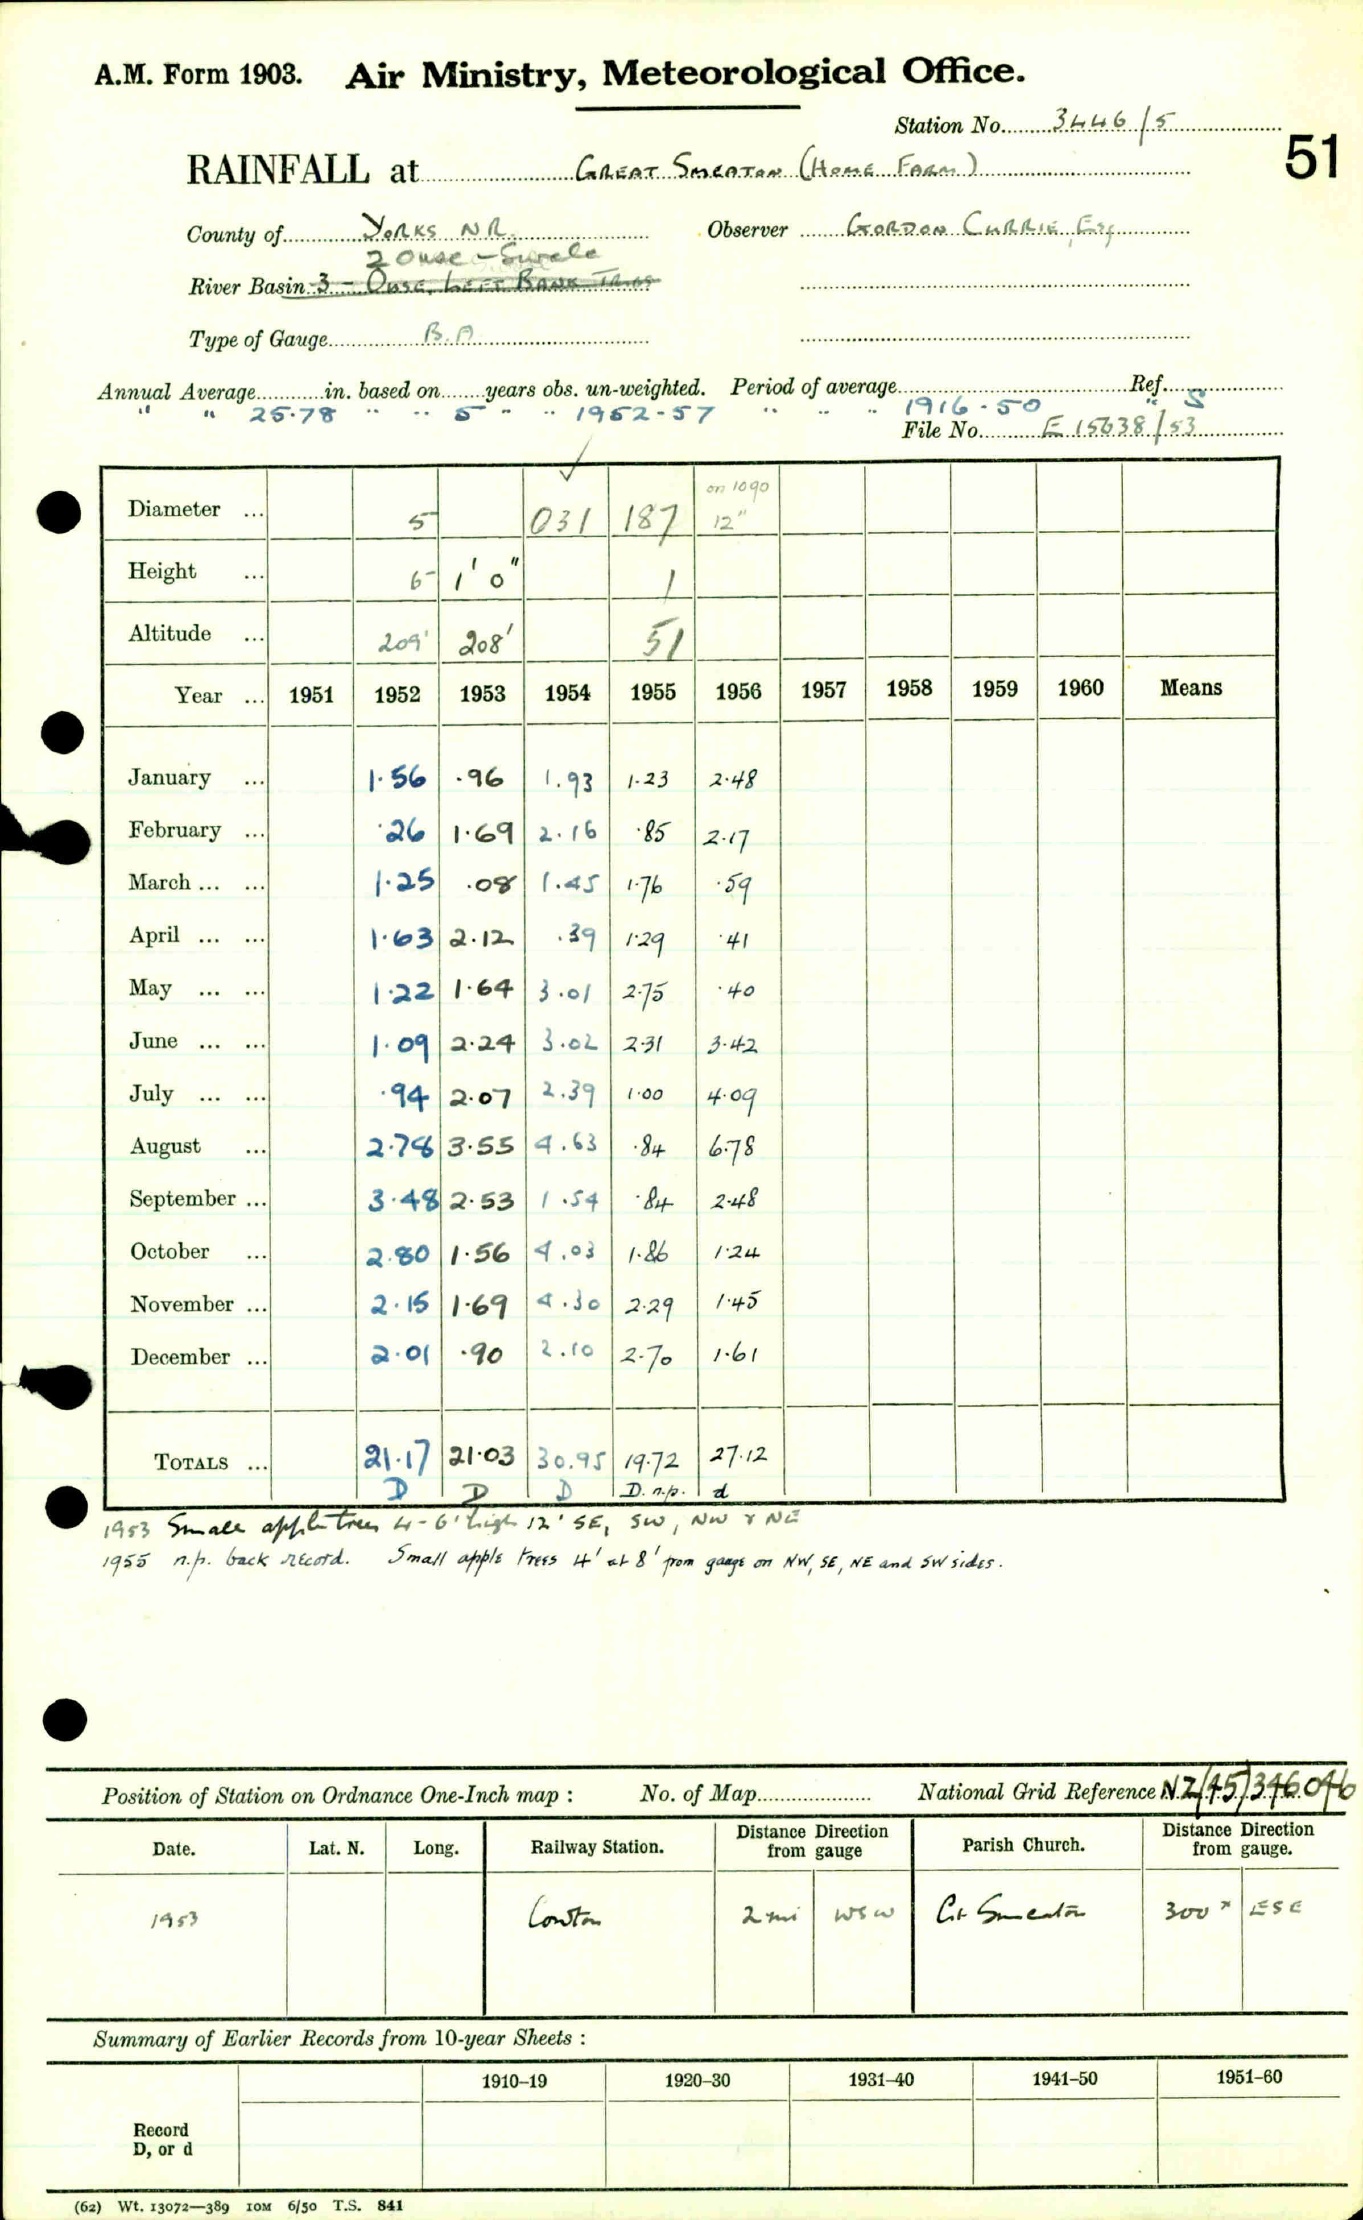 A.M. Form 1903. Air Ministry, Meteorological Office.
Station No. 3446/5
51
RAINFALL at GREAT SMEATON (HOME FARM)
County of YORKS N.R. Observer GORDON CURRIE, Esq
2 Ouse - Swale
River Basin 3 - OUSE, LEFT BANK TRIBS
Type of Gauge B.A
Annual Average in. based on years obs. un-weighted. Period of average Ref.
" " 25.78 " " 5 " " 1952-57 " " " 1916-50 " S
File No. E 15638/53
on 1090
Diameter ... 5 031 187 12"
Height ... 6 1' 0" 1
Altitude ... 209' 208' 51
Year ... 1951 1952 1953 1954 1955 1956 1957 1958 1959 1960 Means
January ... 1.56 .96 1.93 1.23 2.48
February ... .26 1.69 2.16 .85 2.17
March ... ... 1.25 .08 1.45 1.76 .59
April ... ... 1.63 2.12 .39 1.29 .41
May ... ... 1.22 1.64 3.01 2.75 .40
June ... ... 1.09 2.24 3.02 2.31 3.42
July ... ... .94 2.07 2.39 1.00 4.09
August ... 2.78 3.55 4.63 .84 6.78
September ... 3.48 2.53 1.54 .84 2.48
October ... 2.80 1.56 4.03 1.86 1.24
November ... 2.15 1.69 4.30 2.29 1.45
December ... 2.01 .90 2.10 2.70 1.61
TOTALS ... 21.17 21.03 30.95 19.72 27.12
D D D D. n.p. d
1953 Small apple trees 4-6' high 12' SE, SW, NW & NE
1955 n.p. back record. Small apple trees 4' at 8' from gauge on NW, SE, NE and SW sides.
Position of Station on Ordnance One-Inch map : No. of Map National Grid Reference NZ/(45)346046
Date. Lat. N. Long. Railway Station. Distance Direction from gauge Parish Church. Distance Direction from gauge.
1953 Cowton 2 mi WSW Gt Smeaton 300 x ESE
Summary of Earlier Records from 10-year Sheets :
1910–19 1920–30 1931–40 1941–50 1951–60
Record
D, or d
(62) Wt. 13072—389 10M 6/50 T.S. 841